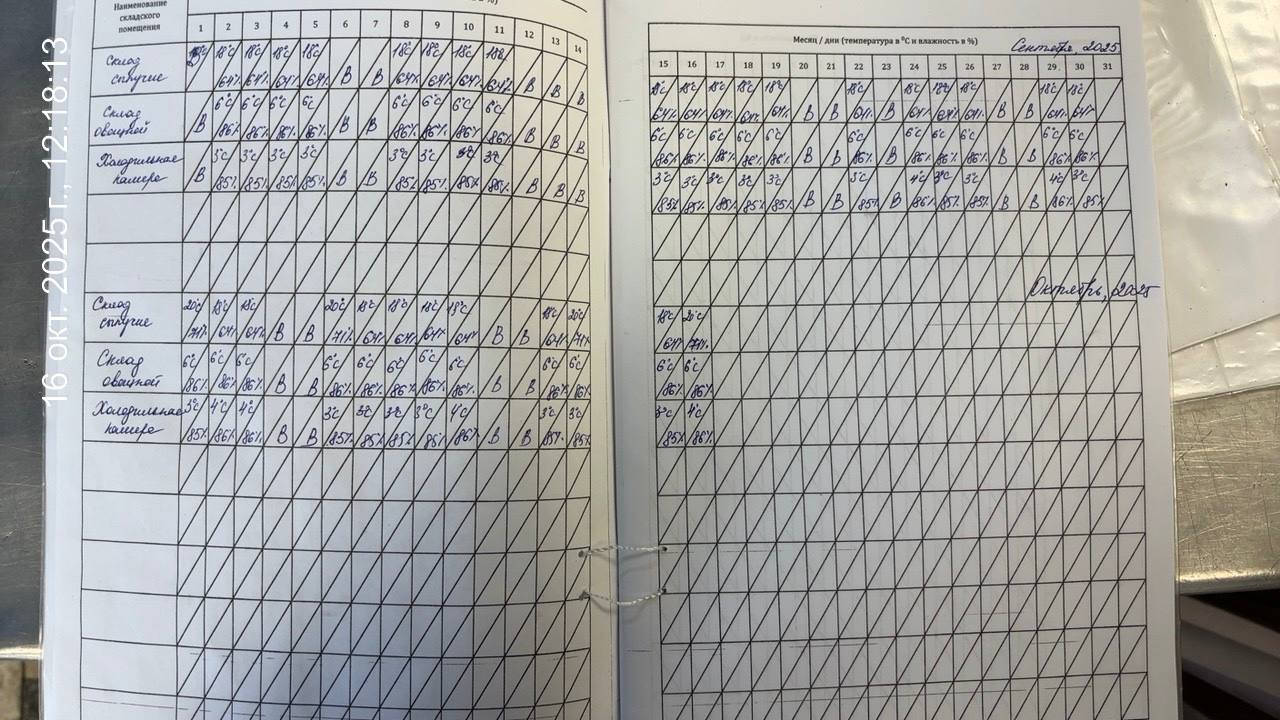 Наименование складского помещения
1 2 3 4 5 6 7 8 9 10 11 12 13 14
Склад сыпучие
18°С 18°С 18°С 18°С 18°С 18°С 18°С 18°С
64% 64% 64% 64% В В 64% 64% 64% 64% В В В
Склад овощной
6°С 6°С 6°С 6°С 6°С 6°С 6°С 6°С
В 86% 86% 86% 86% В В 86% 86% 86% 86% В В В
Холодильная камера
3°С 3°С 3°С 3°С 3°С 3°С 3°С 3°С
В 85% 85% 85% 85% В В 85% 85% 85% 85% В В В
Склад сыпучие
20°С 18°С 18°С 20°С 18°С 18°С 18°С 18°С 18°С 20°С
71% 64% 64% В В 71% 64% 64% 64% 64% В В 64% 71%
Склад овощной
6°С 6°С 6°С 6°С 6°С 6°С 6°С 6°С 6°С 6°С
86% 86% 86% В В 86% 86% 86% 86% 86% В В 86% 86%
Холодильная камера
3°С 4°С 4°С 3°С 3°С 3°С 3°С 4°С 3°С 3°С
85% 86% 86% В В 85% 85% 85% 85% 86% В В 85% 85%
Месяц / дни (температура в °С и влажность в %) Сентябрь, 2025
15 16 17 18 19 20 21 22 23 24 25 26 27 28 29 30 31
18°С 18°С 18°С 18°С 18°С 18°С 18°С 18°С 18°С 18°С 18°С
64% 64% 64% 64% 64% В В 64% В 64% 64% 64% В В 64% 64%
6°С 6°С 6°С 6°С 6°С 6°С 6°С 6°С 6°С 6°С 6°С
86% 86% 86% 86% 86% В В 86% В 86% 86% 86% В В 86% 86%
3°С 3°С 3°С 3°С 3°С 3°С 4°С 3°С 3°С 4°С 3°С
85% 85% 85% 85% 85% В В 85% В 86% 85% 85% В В 86% 85%
Октябрь, 2025
18°С 20°С
64% 71%
6°С 6°С
86% 86%
3°С 4°С
85% 86%
16 окт. 2025 г., 12:18:13